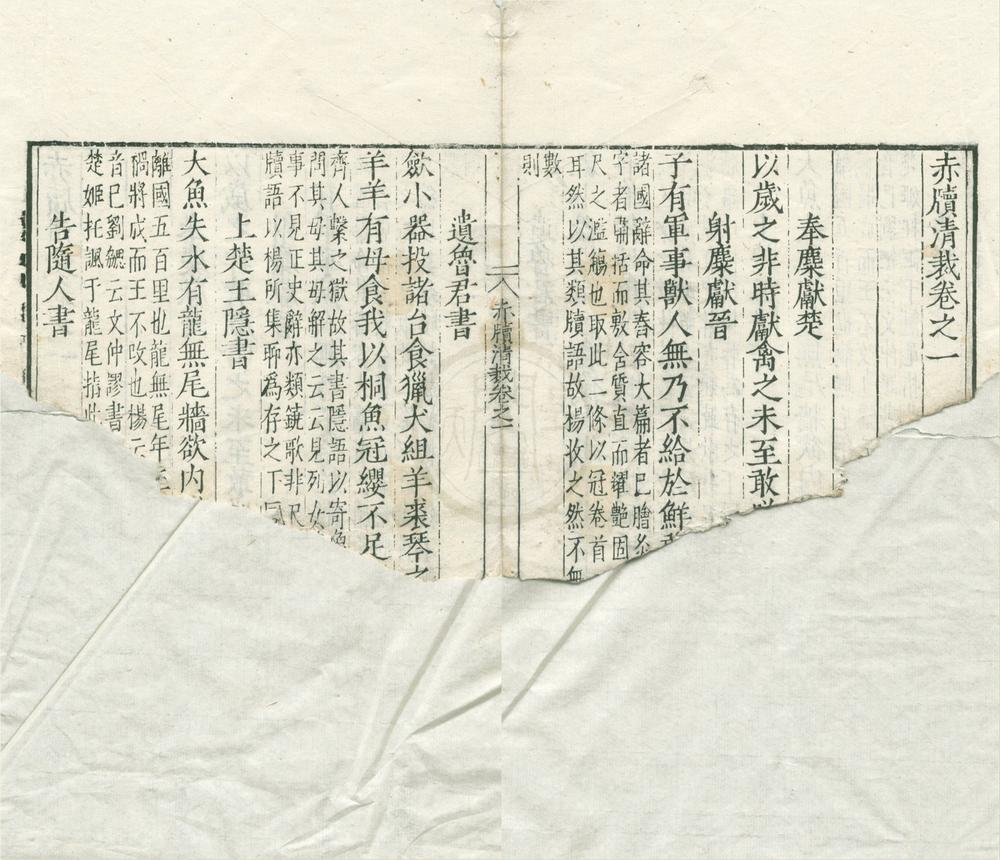 赤牘清裁卷之一
奉麋獻楚
以歲之非時獻禽之未至敢
射麋獻晉
子有軍事獸人無乃不給於鮮
諸國辭命其舂容大篇者已膾
字者櫽括而敷舍質直而濯艷固
尺之濫觴也取此二條以冠卷首
耳然以其類牘語故揚收之然不無
數
則
赤牘清裁卷之一
一
遺魯君書
斂小器投諸台食獵犬組羊裘琴之
羊羊有母食我以桐魚冠纓不足
齊人繫之獄故其書隱語以寄魯
問其母其母解之云云見列女
事不見正史辭亦類鐃歌非尺
牘語以楊所集聊爲存之下同
上楚王隱書
大魚失水有龍無尾牆欲内
離國五百里也龍無尾年
禍將成而王不改也楊云
音巳劉勰云文仲謬書
楚姬托諷于龍尾指此
告隨人書